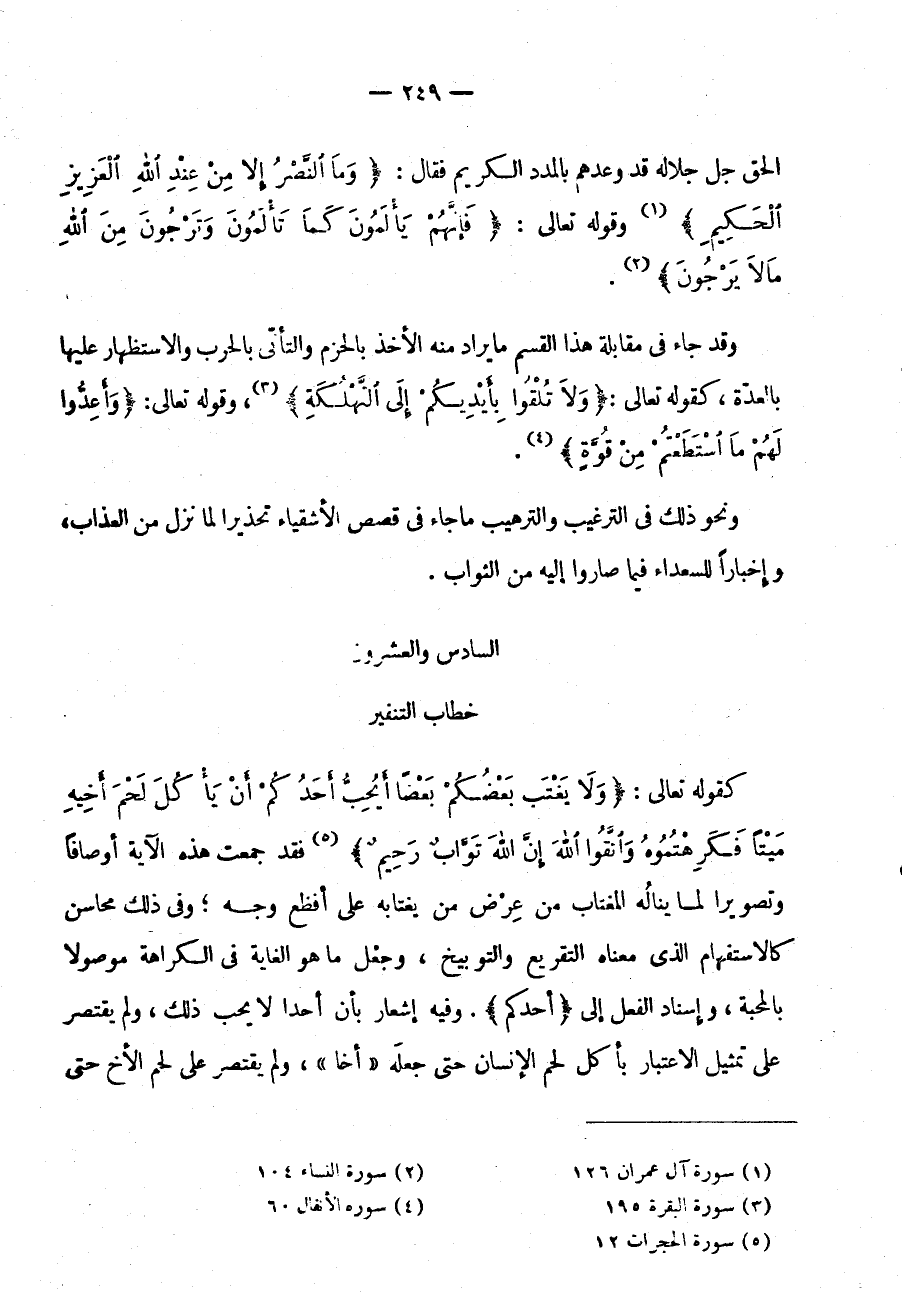 — ٢٤٩ —
الحق جل جلاله قد وعدهم بالمدد الكريم فقال : ﴿ وَمَا ٱلنَّصْرُ إلا مِنْ عِنْدِ ٱللهِ ٱلْعَزِيزِ
ٱلْحَكِيمِ ﴾ (١) وقوله تعالى : ﴿ فَإِنَّهُمْ يَأْلَمُونَ كَمَا تَأْلَمُونَ وَتَرْجُونَ مِنَ ٱللهِ
مَالاَ يَرْجُونَ ﴾ (٢) .
وقد جاء فى مقابلة هذا القسم مايراد منه الأخذ بالحزم والتأنّى بالحرب والاستظهار عليها
بالعدّة ، كقوله تعالى : ﴿ وَلاَ تُلْقُوا بِأَيْدِيكُمْ إِلَى ٱلتَّهْلُكَةِ ﴾ (٣) ، وقوله تعالى : ﴿ وَأَعِدُّوا
لَهُمْ مَا ٱسْتَطَعْتُمْ مِنْ قُوَّةٍ ﴾ (٤) .
ونحو ذلك فى الترغيب والترهيب ماجاء فى قصص الأشقياء تحذيرا لما نزل من العذاب،
وإخباراً للسعداء فيما صاروا إليه من الثواب .
السادس والعشرون
خطاب التنفير
كقوله تعالى : ﴿ وَلَا يَغْتَب بَعْضُكُمْ بَعْضًا أَيُحِبُّ أَحَدُكُمْ أَنْ يَأْكُلَ لَحْمَ أَخِيهِ
مَيْتًا فَكَرِهْتُمُوهُ وَٱتَّقُوا ٱللهَ إِنَّ اللهَ تَوَّابٌ رَحِيمٌ ﴾ (٥) فقد جمعت هذه الآية أوصافاً
وتصويرا لما ينالُه المغتاب من عِرْض من يغتابه على أفظع وجه ؛ وفى ذلك محاسن
كالاستفهام الذى معناه التقريع والتوبيخ ، وجعْل ما هو الغاية فى الكراهة موصولا
بالمحبة ، وإسناد الفعل إلى ﴿ أحدكم ﴾ . وفيه إشعار بأن أحدا لايحب ذلك ، ولم يقتصر
على تمثيل الاعتبار بأكل لحم الإنسان حتى جعلَه « أخا » ، ولم يقتصر على لحم الأخ حتى
(١) سورة آل عمران ١٢٦ (٢) سورة النساء ١٠٤
(٣) سورة البقرة ١٩٥ (٤) سوره الأنفال ٦٠
(٥) سورة الحجرات ١٢